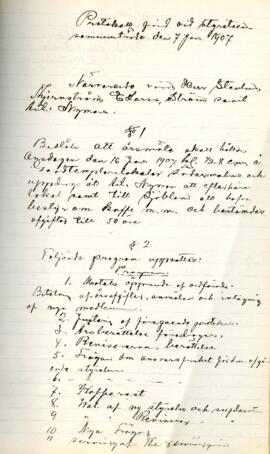 Protokoll förd vid styrelsen
sammanträde den 7 Jan 1907.
Närvarande voro Herr
Stjernström, Ström samt
Nyman.
§ 1
Beslöts att årsmöte skall hållas
Onsdagen den 16 Jan 1907 kl. 7.30 e.m. i
och
uppdrogs åt Nyman att
lokal samt till att
bestyr om kaffe m.m. och bestämdes
afgiften till 50 öre
§ 2
Följande program uppsattes:
1. Mötets öppnande af ordförande.
Betalning af årsafgifter, anmälan och intagning
af nya medlemmar.
2. Justering af föregående protokoll.
3. Årsberättelse föredrages.
4. Revisorernas berättelse
5. Frågan om ansvarsfrihet för den afgå-
ende styrelsen
6. "
7. Kafferast
8. Val af ny styrelse och suppleant
9 " " Revisorer
10 Nya Frågor
11